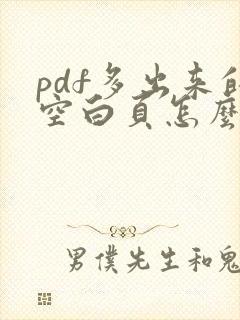 pdf多出来的
空白頁怎麼
男僕先生和鬼